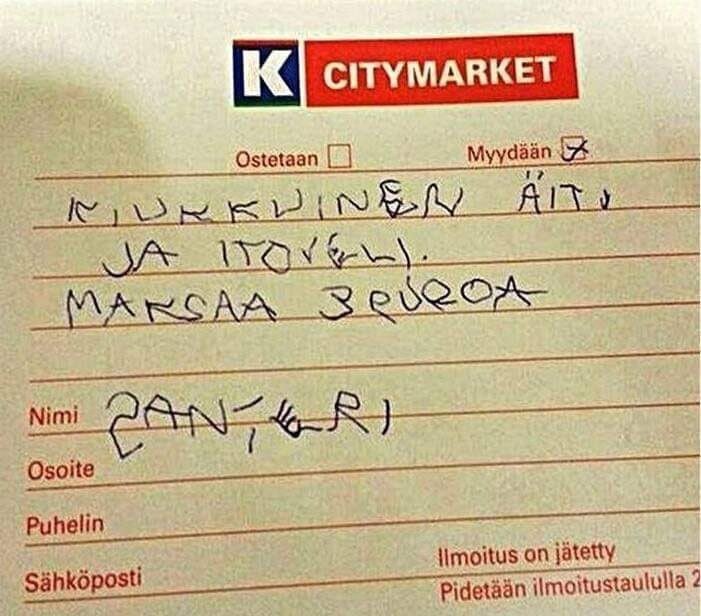 K CITYMARKET
Ostetaan Myydään
KIUKKUINEN ÄITI
JA ITOVELI.
MAKSAA 3 EUROA
Nimi SANTERI
Osoite
Puhelin
Sähköposti
Ilmoitus on jätetty
Pidetään ilmoitustaululla 2